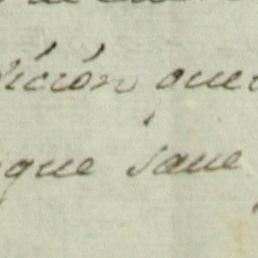 ición que
que saue